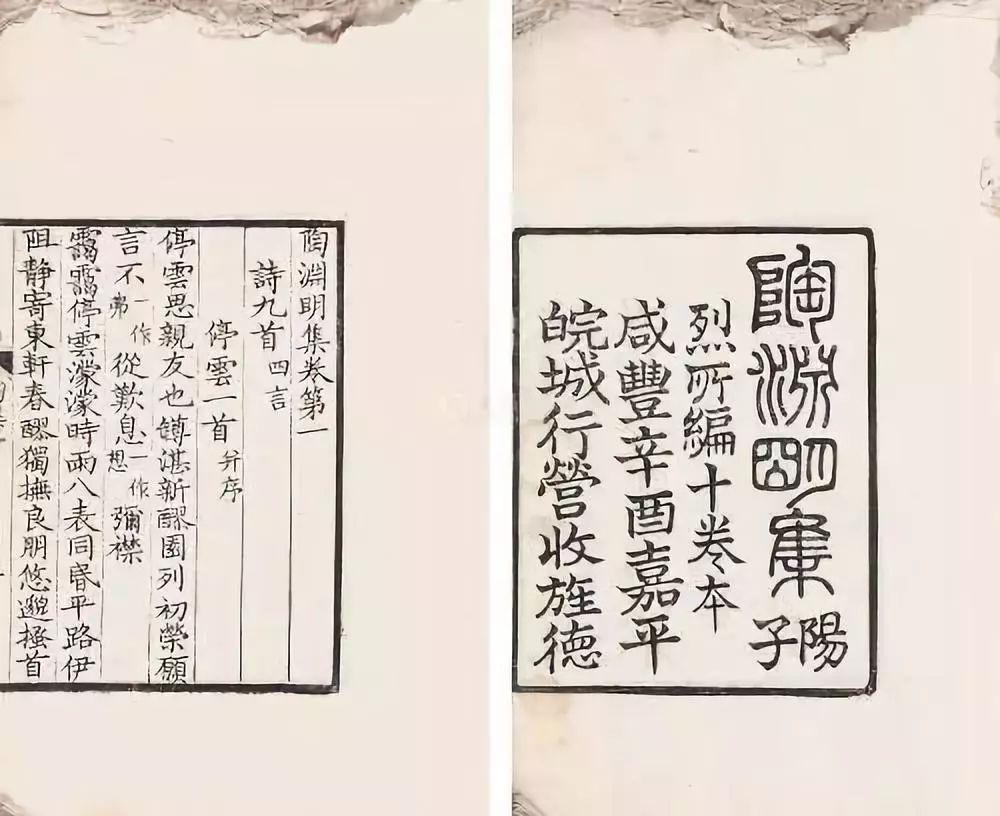 陶淵明集陽子
烈所編十卷本
咸豐辛酉嘉平
皖城行營收旌德
陶淵明集卷第一
詩九首四言
停雲一首并序
停雲思親友也罇湛新醪園列初榮願
言不一作弗從歎息一作想彌襟
靄靄停雲濛濛時雨八表同昬平路伊
阻靜寄東軒春醪獨撫良朋悠邈搔首